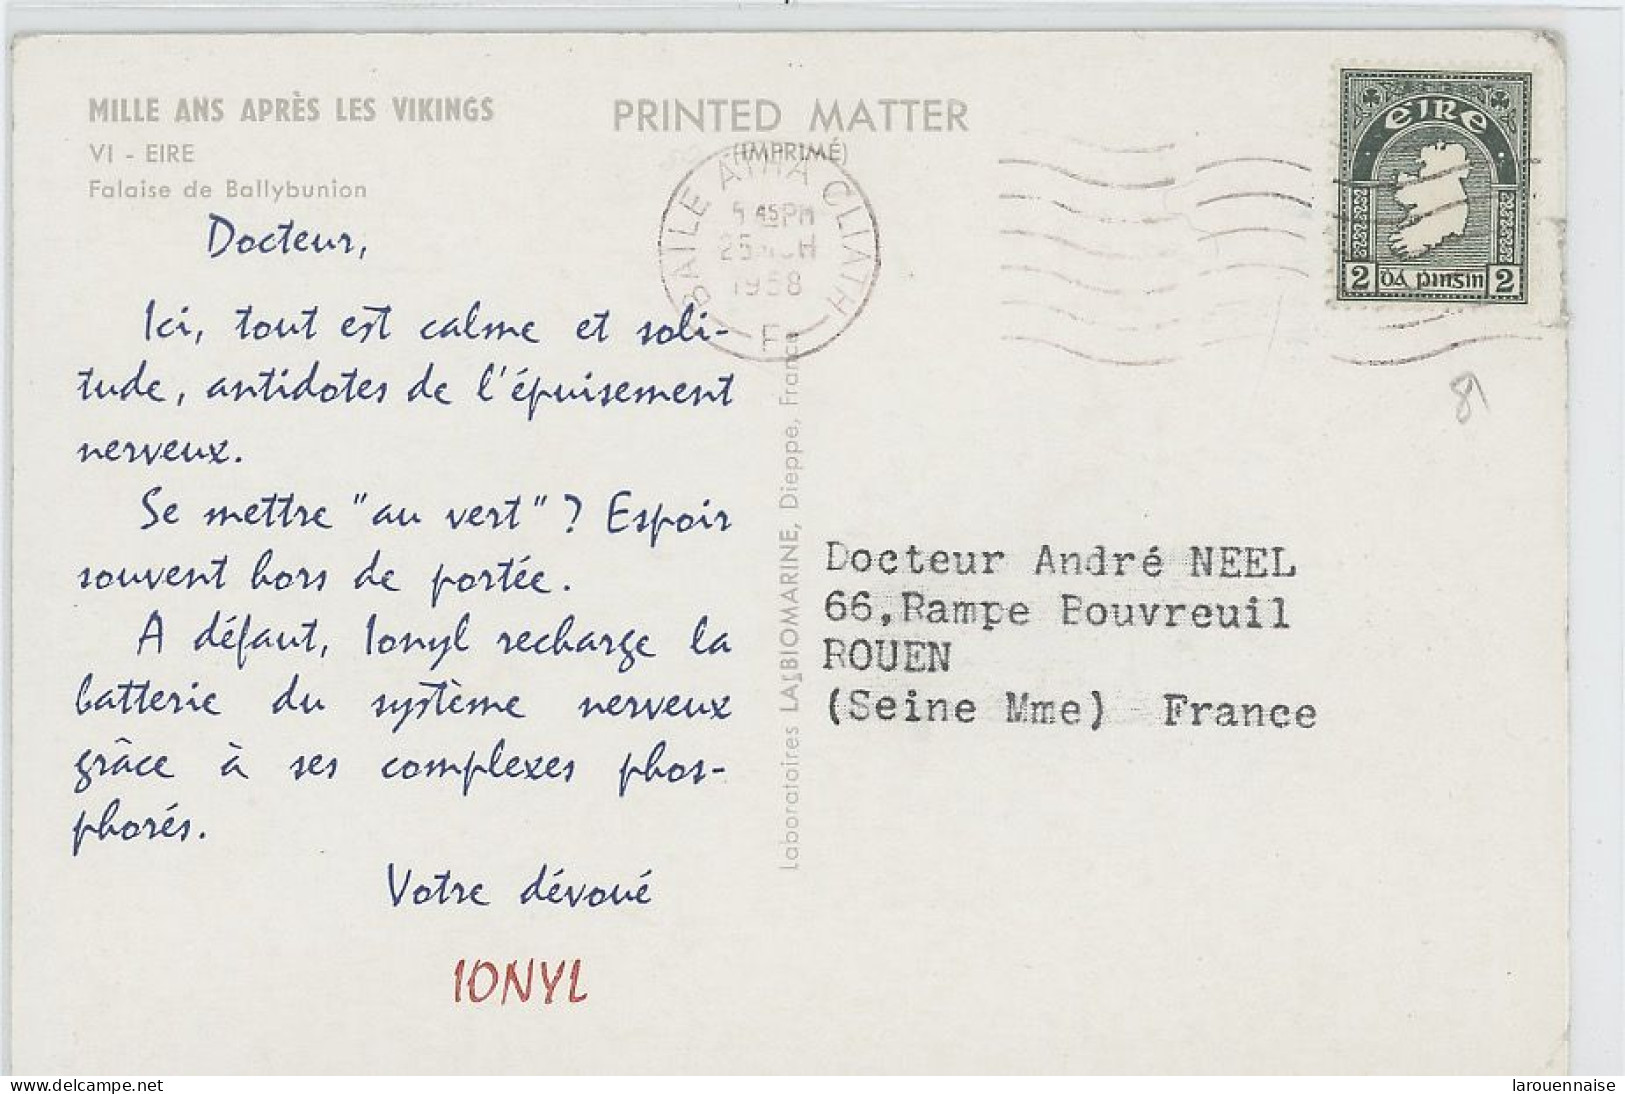 MILLE ANS APRÈS LES VIKINGS
VI - EIRE
Falaise de Ballybunion
PRINTED MATTER
(IMPRIMÉ)
BAILE ATHA CLIATH
45 PM
1958
F
EIRE
2 DÁ PINSIN 2
81
Docteur,
Ici, tout est calme et soli-
tude, antidotes de l'épuisement
nerveux.
Se mettre "au vert"? Espoir
souvent hors de portée.
A défaut, Ionyl recharge la
batterie du système nerveux
grâce à ses complexes phos-
phorés.
Votre dévoué
IONYL
Laboratoires LA BIOMARINE, Dieppe, France
Docteur André NEEL
66,Rampe Bouvreuil
ROUEN
(Seine Mme) France
delcampe.net
larouennaise